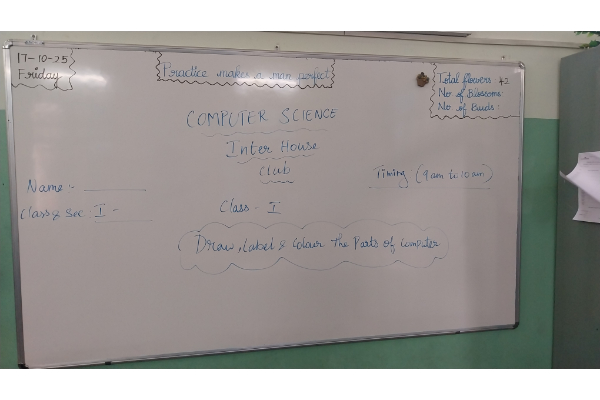 17-10-25
Friday
Practice makes a man perfect
Total flowers : 42
No of Blossoms:
No of Buds :
COMPUTER SCIENCE
Inter House
Club
Timing (9am to 10am)
Name :-
Class & Sec I -
Class - I
Draw, Label & Colour The Parts of Computer